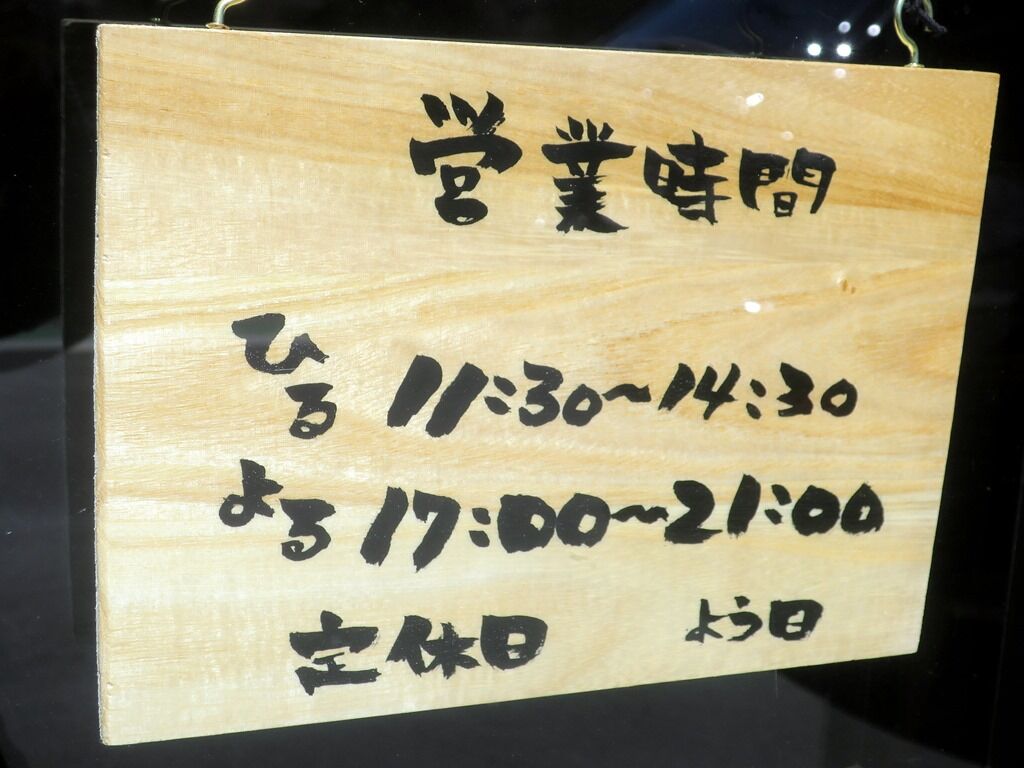 営業時間
ひる 11:30~14:30
よる 17:00~21:00
定休日 よう日